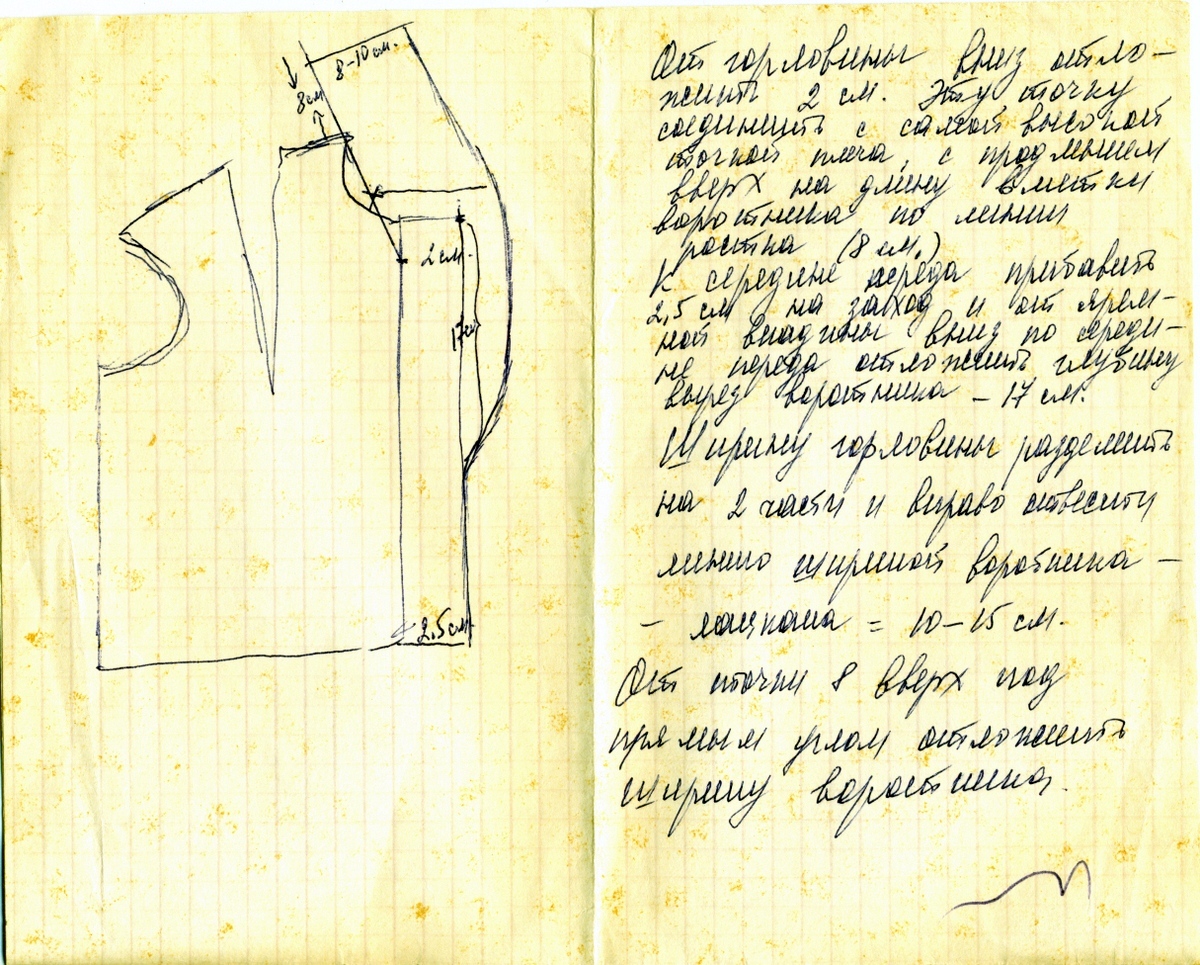 8-10 см.
8 см
2 см.
17 см
2,5 см
От горловины вниз отло-
жить 2 см. Эту точку
соединить с самой высокой
точкой плеча, с продлением
вверх на длину вметки
воротника по линии
ростка (8 см.)
К середине переда прибавить
2,5 см на заход и от ярем-
ной впадины вниз по середи-
не переда отложить глубину
вырез воротника – 17 см.
Ширину горловины разделить
на 2 части и вправо отвести
линию шириной воротника –
– лацкана = 10–15 см.
От точки 8 вверх под
прямым углом отложить
ширину воротника.